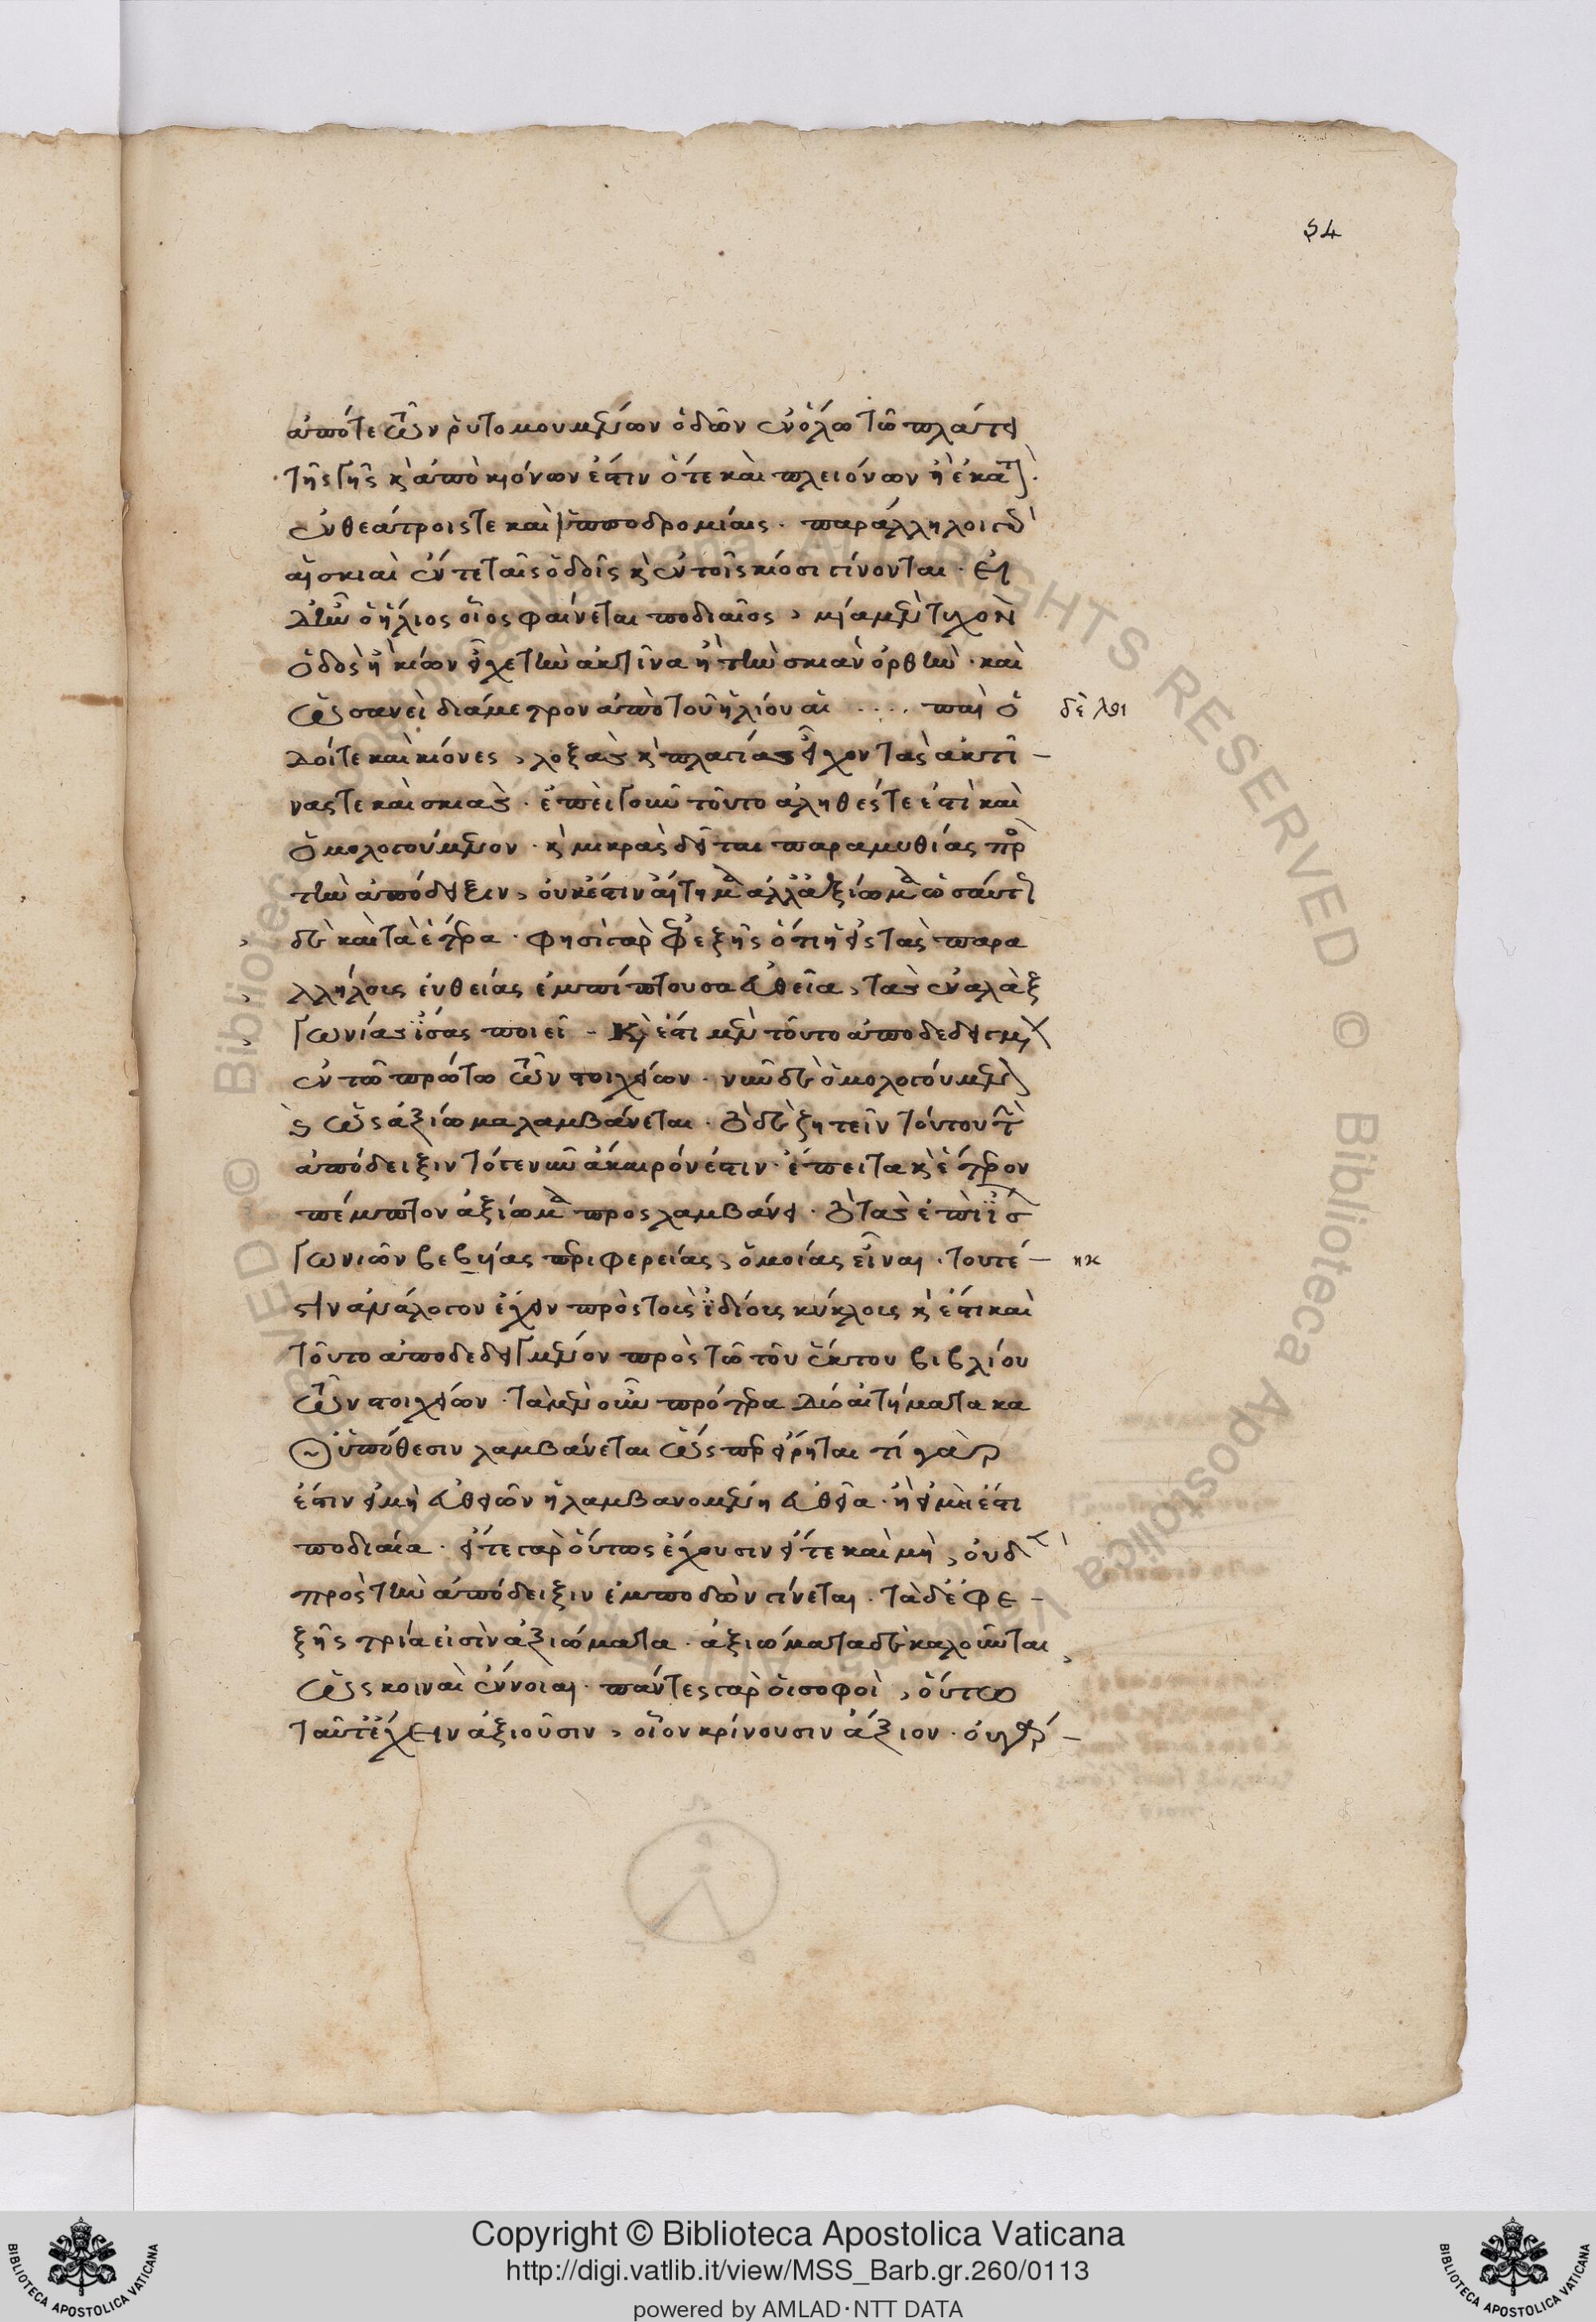 54
ἀπό τε τῶν ῥυτομουμένων ὁδῶν ἐν ὅλω τῶ πλάτει
τῆς γῆς κ̀ ἀπὸ κιόνων ἐστὶν ὅτε καὶ πλειόνων ἢ ἑκατ̀
ἐν θεάτροις τε καὶ ἱπποδρομίαις · παράλληλοι γὰρ
αἱ σκιαὶ ἔν τε ταῖς ὁδοῖς κ̀ ἐν τοῖς κίοσι γίνονται · εἰ
δ' ἦν ὁ ἥλιος οἷος φαίνεται ποδιαῖος , μία μὲν τυχὸν
ὁδὸς ἢ κίων εἶχε τὴν ἀκτῖνα ἢ τὴν σκιὰν ὀρθὴν · καὶ
ὡσανεὶ διάμετρον ἀπὸ τοῦ ἡλίου αἱ .... παι ὁ
δὲ λοι
δοί τε καὶ κίονες , λοξὰς κ̀ πλαγίας εἶχον τὰς ἀκτῖ –
νας τε καὶ σκιάς · ἐπεὶ γοῦν τοῦτο ἀληθές τέ ἐστι καὶ
ὁμολογούμενον · κ̀ μικρᾶς δεῖται παραμυθίας πρὸς
τὴν ἀπόδειξιν , οὐκ ἔστιν αἴτημα ἀλλ' ἀξίωμα ὡσαύτως
δὲ καὶ τὰ ἕτερα · φησὶ γὰρ ἐφεξῆς ὅτι ἡ εἰς τὰς παρα
λλήλους εὐθείας ἐμπίπτουσα εὐθεῖα , τὰς ἐναλλὰξ
γωνίας ἴσας ποιεῖ – κ̀ ἔστι μὲν τοῦτο ἀποδεδειγμένον
ἐν τῶ πρώτω τῶν στοιχείων · νῦν δὲ ὁμολογούμενον
ὡς ἀξίωμα λαμβάνεται · τὸ δὲ ζητεῖν τούτου τὴν
ἀπόδειξιν τό γε νῦν ἄκαιρόν ἐστιν · ἔπειτα κ̀ ἕτερον
πέμπτον ἀξίωμα προσλαμβάνει · τὸ τὰς ἐπὶ ἴσων
γωνιῶν βεβηκυίας περιφερείας , ὁμοίας εἶναι · τουτέ –
ηκ
στιν ἀνάλογον ἔχειν πρὸς τοὺς ἰδίους κύκλους κ̀ ἔστι καὶ
τοῦτο ἀποδεδειγμένον πρὸς τῶ τοῦ ἕκτου βιβλίου
τῶν στοιχείων · τὰ μὲν οὖν πρότερα δύο αἰτήματα κα
θ' ὑπόθεσιν λαμβάνεται ὥσπερ εἴρηται τί γὰρ
ἐστὶν εἰ μὴ εὐθειῶν ἡ λαμβανομένη εὐθεῖα · ἢ εἰ μὴ ἔστι
ποδιαία · εἴτε γὰρ οὕτως ἔχουσιν εἴτε καὶ μὴ , οὐδὲν
πρὸς τὴν ἀπόδειξιν ἐμποδὼν γίνεται · τὰ δὲ ἐφε –
ξῆς τρία εἰσὶν ἀξιώματα · ἀξιώματα δὲ καλοῦνται
ὡς κοιναὶ ἔννοιαι · πάντες γὰρ οἱ σοφοὶ , οὕτω
ταῦτ' ἔχειν ἀξιοῦσιν , οἷον κρίνουσιν ἄξιον ·
Copyright © Biblioteca Apostolica Vaticana
http://digi.vatlib.it/view/MSS_Barb.gr.260/0113
powered by AMLAD·NTT DATA